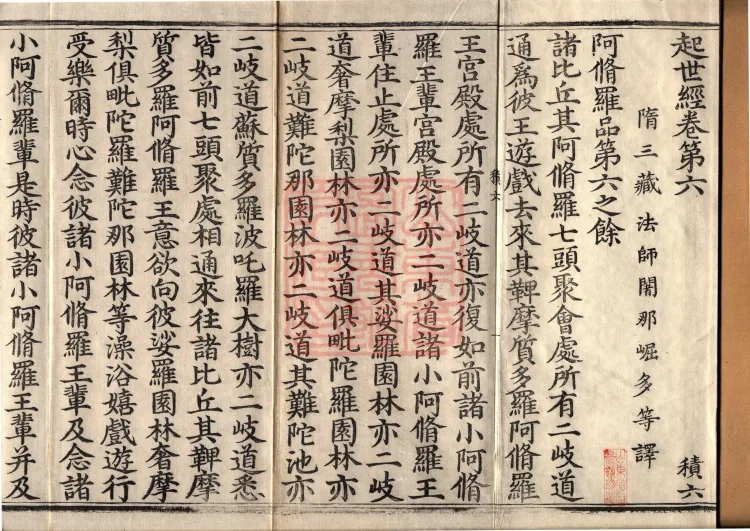 起世經卷第六
積六
隋三藏法師闍那崛多等譯
阿脩羅品第六之餘
諸比丘其阿脩羅七頭聚會處所有二岐道
通爲彼王遊戲去來其鞞摩質多羅阿脩羅
積六
王宮殿處所有二岐道亦復如前諸小阿脩
羅王輩宮殿處所亦二岐道諸小阿脩羅王
輩住止處所亦二岐道其娑羅園林亦二岐
道奢摩梨園林亦二岐道俱毗陀羅園林亦
二岐道難陀那園林亦二岐道其難陀池亦
二岐道蘇質多羅波吒羅大樹亦二岐道悉
皆如前七頭聚處相通來往諸比丘其鞞摩
質多羅阿脩羅王意欲向彼娑羅園林奢摩
梨俱毗陀羅難陀那園林等澡浴嬉戲遊行
受樂爾時心念彼諸小阿脩羅王輩及念諸
小阿脩羅輩是時彼諸小阿脩羅王輩并及